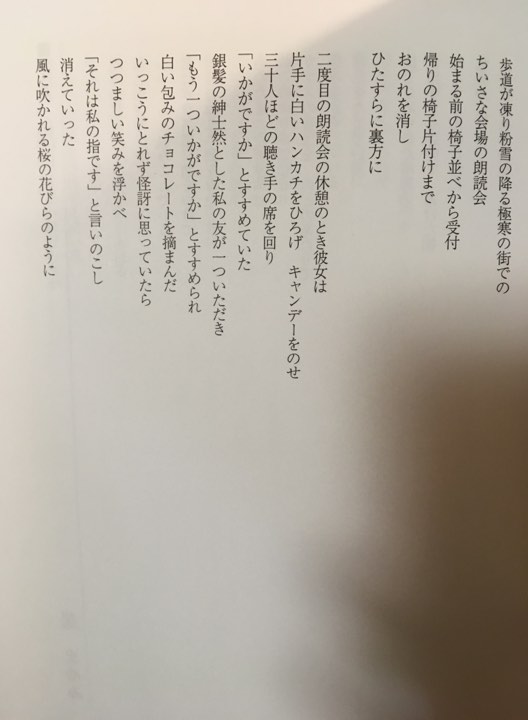 歩道が凍り粉雪の降る極寒の街での
ちいさな会場の朗読会
始まる前の椅子並べから受付
帰りの椅子片付けまで
おのれを消し
ひたすらに裏方に
二度目の朗読会の休憩のとき彼女は
片手に白いハンカチをひろげ　キャンデーをのせ
三十人ほどの聴き手の席を回り
「いかがですか」とすすめていた
銀髪の紳士然とした私の友が一ついただき
「もう一ついかがですか」とすすめられ
白い包みのチョコレートを摘まんだ
いっこうにとれず怪訝に思っていたら
つつましい笑みを浮かべ
「それは私の指です」と言いのこし
消えていった
風に吹かれる桜の花びらのように